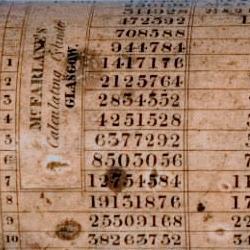 472392
708588
944784
1 1417176
2 2125764
3 2834352
4 4251528
5 6377292
6 8503056
7 12754584
8 19131876
9 25509168
10 38263752
McFARLANE'S
Calculating Cylinder
GLASGOW